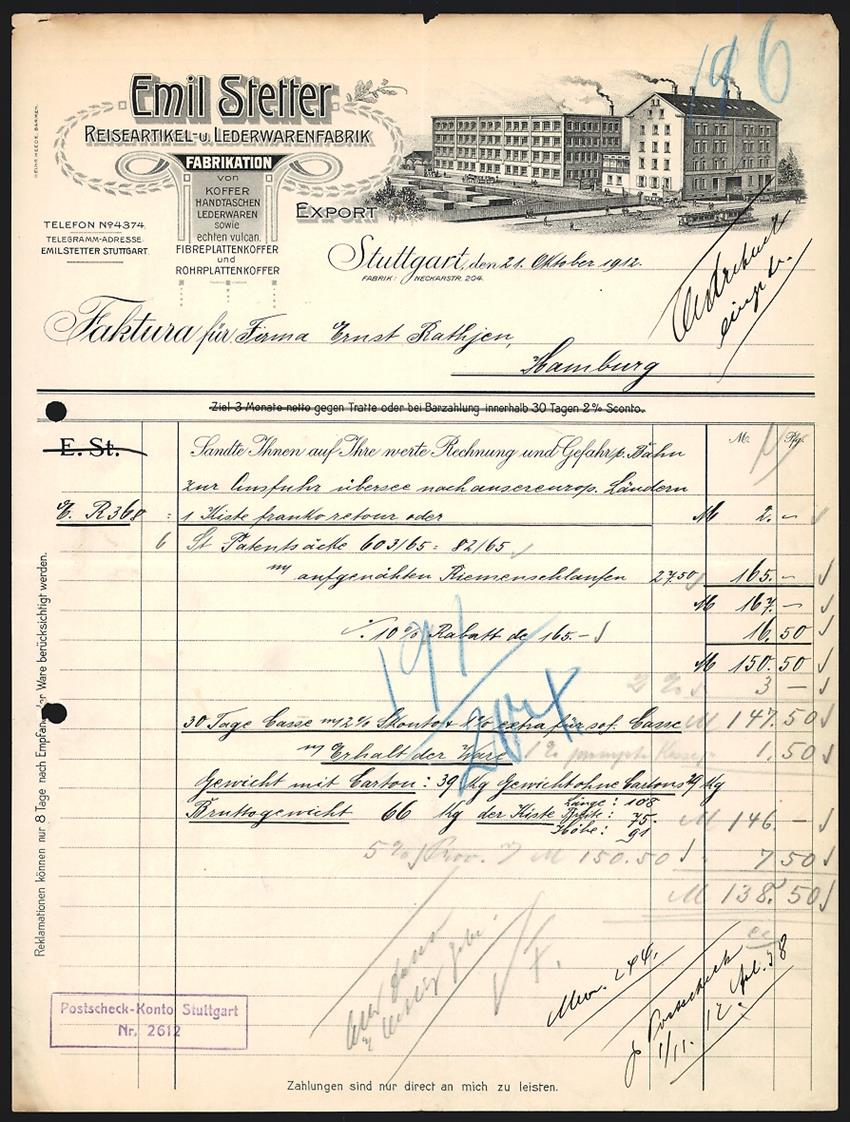 196
Emil Stetter
REISEARTIKEL- U. LEDERWARENFABRIK
FABRIKATION
von
KOFFER
HANDTASCHEN
LEDERWAREN
sowie
echten vulcan.
FIBREPLATTENKOFFER
und
ROHRPLATTENKOFFER
EXPORT
TELEFON No 4374.
TELEGRAMM-ADRESSE:
EMILSTETTER STUTTGART.
Stuttgart, den 21. Oktober 1912.
FABRIK: NECKARSTR. 204.
Faktura für Firma Ernst Rathjen,
Hamburg
Ziel 3 Monate netto gegen Tratte oder bei Barzahlung innerhalb 30 Tagen 2% Sconto.
E. St.
M. Pfg.
Sandte Ihnen auf Ihre werte Rechnung und Gefahr p. Bahn
zur Ausfuhr übersee nach aussereurop. Ländern
E. R 368 = 1 Kiste franko retour oder M 2. –
6 St Patentsäcke 603/65 = 82/65
m/ aufgenähten Riemenschlaufen 27.50 165. –
M 167. –
./. 10% Rabatt de 165. – 16.50
M 150.50
2% 3 –
30 Tage Casse m/ 2% Skonto + 1% extra für sof. Casse M 147.50
n/ Erhalt der Ware 1% prompte Kasse 1.50
Gewicht mit Carton: 39 Kg Gewicht ohne Cartons Kg
Bruttogewicht 66 Kg der Kiste
Länge: 108
Breite: 75.
Höhe: 91
M 146. –
5% Prov. M 150.50 7.50
M 138.50
191
204
Postscheck-Konto Stuttgart
Nr. 2612
Postscheck
1/11. 12.
Reklamationen können nur 8 Tage nach Empfang der Ware berücksichtigt werden.
Zahlungen sind nur direct an mich zu leisten.